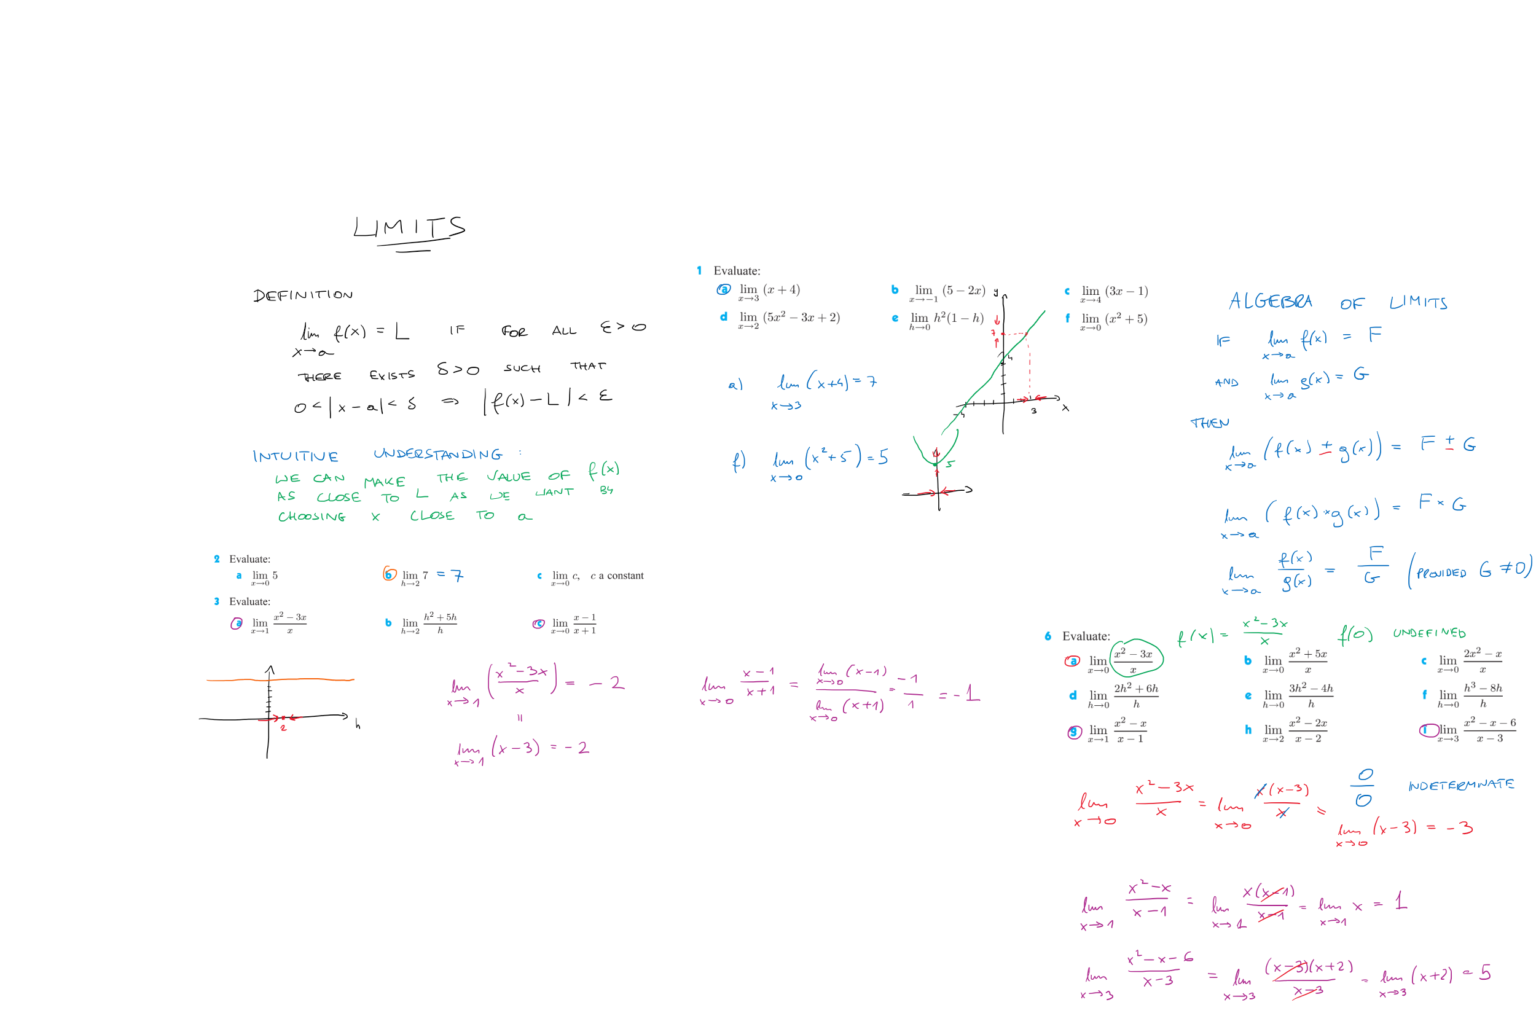 LIMITS
DEFINITION
lim f(x) = L IF FOR ALL ε > 0
x→a
THERE EXISTS δ>0 SUCH THAT
0 < |x - a| < δ ⇒ |f(x) - L| < ε
INTUITIVE UNDERSTANDING :
WE CAN MAKE THE VALUE OF f(x)
AS CLOSE TO L AS WE WANT BY
CHOOSING x CLOSE TO a
2 Evaluate:
a lim x→0 5 b lim h→2 7 = 7 c lim x→0 c, c a constant
3 Evaluate:
a lim x→1 (x² − 3x)/x b lim h→2 (h² + 5h)/h c lim x→0 (x − 1)/(x + 1)
2 h
lim x→1 ((x² − 3x)/x) = −2
=
lim x→1 (x−3) = −2
1 Evaluate:
a lim x→3 (x + 4) b lim x→−1 (5 − 2x) c lim x→4 (3x − 1)
d lim x→2 (5x² − 3x + 2) e lim h→0 h²(1 − h) f lim x→0 (x² + 5)
y
7
4
-4 3 x
a) lim x→3 (x+4) = 7
f) lim x→0 (x²+5) = 5
5
lim x→0 (x−1)/(x+1) = lim x→0 (x−1) / lim x→0 (x+1) = −1/1 = −1
ALGEBRA OF LIMITS
IF lim x→a f(x) = F
AND lim x→a g(x) = G
THEN
lim x→a (f(x) ± g(x)) = F ± G
lim x→a (f(x) × g(x)) = F × G
lim x→a f(x)/g(x) = F/G (PROVIDED G ≠ 0)
6 Evaluate: f(x) = (x² − 3x)/x f(0) UNDEFINED
a lim x→0 (x² − 3x)/x b lim x→0 (x² + 5x)/x c lim x→0 (2x² − x)/x
d lim h→0 (2h² + 6h)/h e lim h→0 (3h² − 4h)/h f lim h→0 (h³ − 8h)/h
g lim x→1 (x² − x)/(x − 1) h lim x→2 (x² − 2x)/(x − 2) i lim x→3 (x² − x − 6)/(x − 3)
0/0 INDETERMINATE
lim x→0 (x² − 3x)/x = lim x→0 x(x−3)/x =
lim x→0 (x−3) = −3
lim x→1 (x²−x)/(x−1) = lim x→1 x(x−1)/(x−1) = lim x→1 x = 1
lim x→3 (x²−x−6)/(x−3) = lim x→3 (x−3)(x+2)/(x−3) = lim x→3 (x+2) = 5